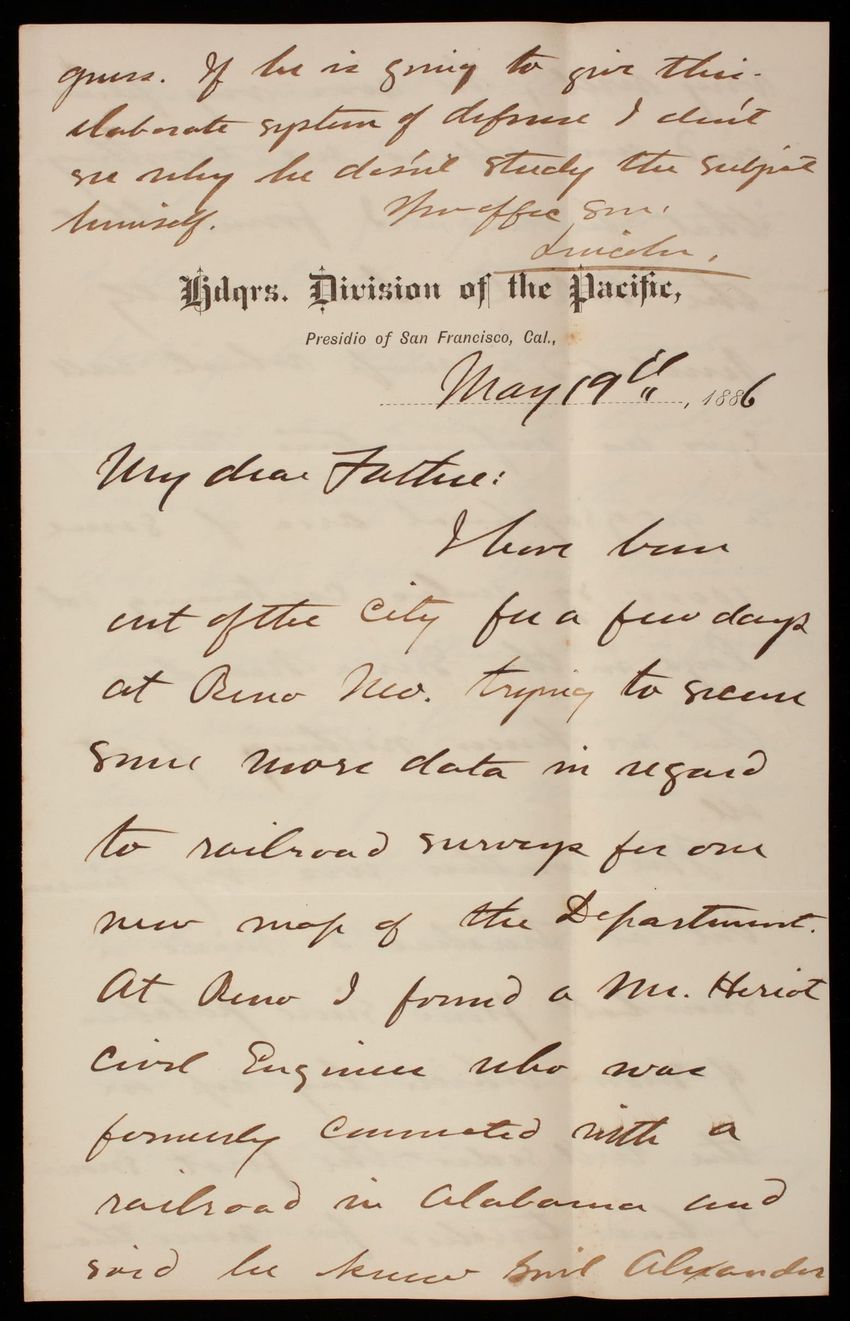 guess. If he is going to give this
elaborate system of defense I don't
see why he does'nt study the subject
himself. Your affec son,
Lincoln.
Hdqrs. Division of the Pacific,
Presidio of San Francisco, Cal.,
May 19th, 1886
My dear Father:
I have been
out of the City for a few days
at Reno Nev. trying to secure
some more data in regard
to railroad surveys for our
new map of the Department.
At Reno I found a Mr. Heriot
Civil Engineer who was
formerly connected with a
railroad in Alabama and
said he knew Genl Alexander